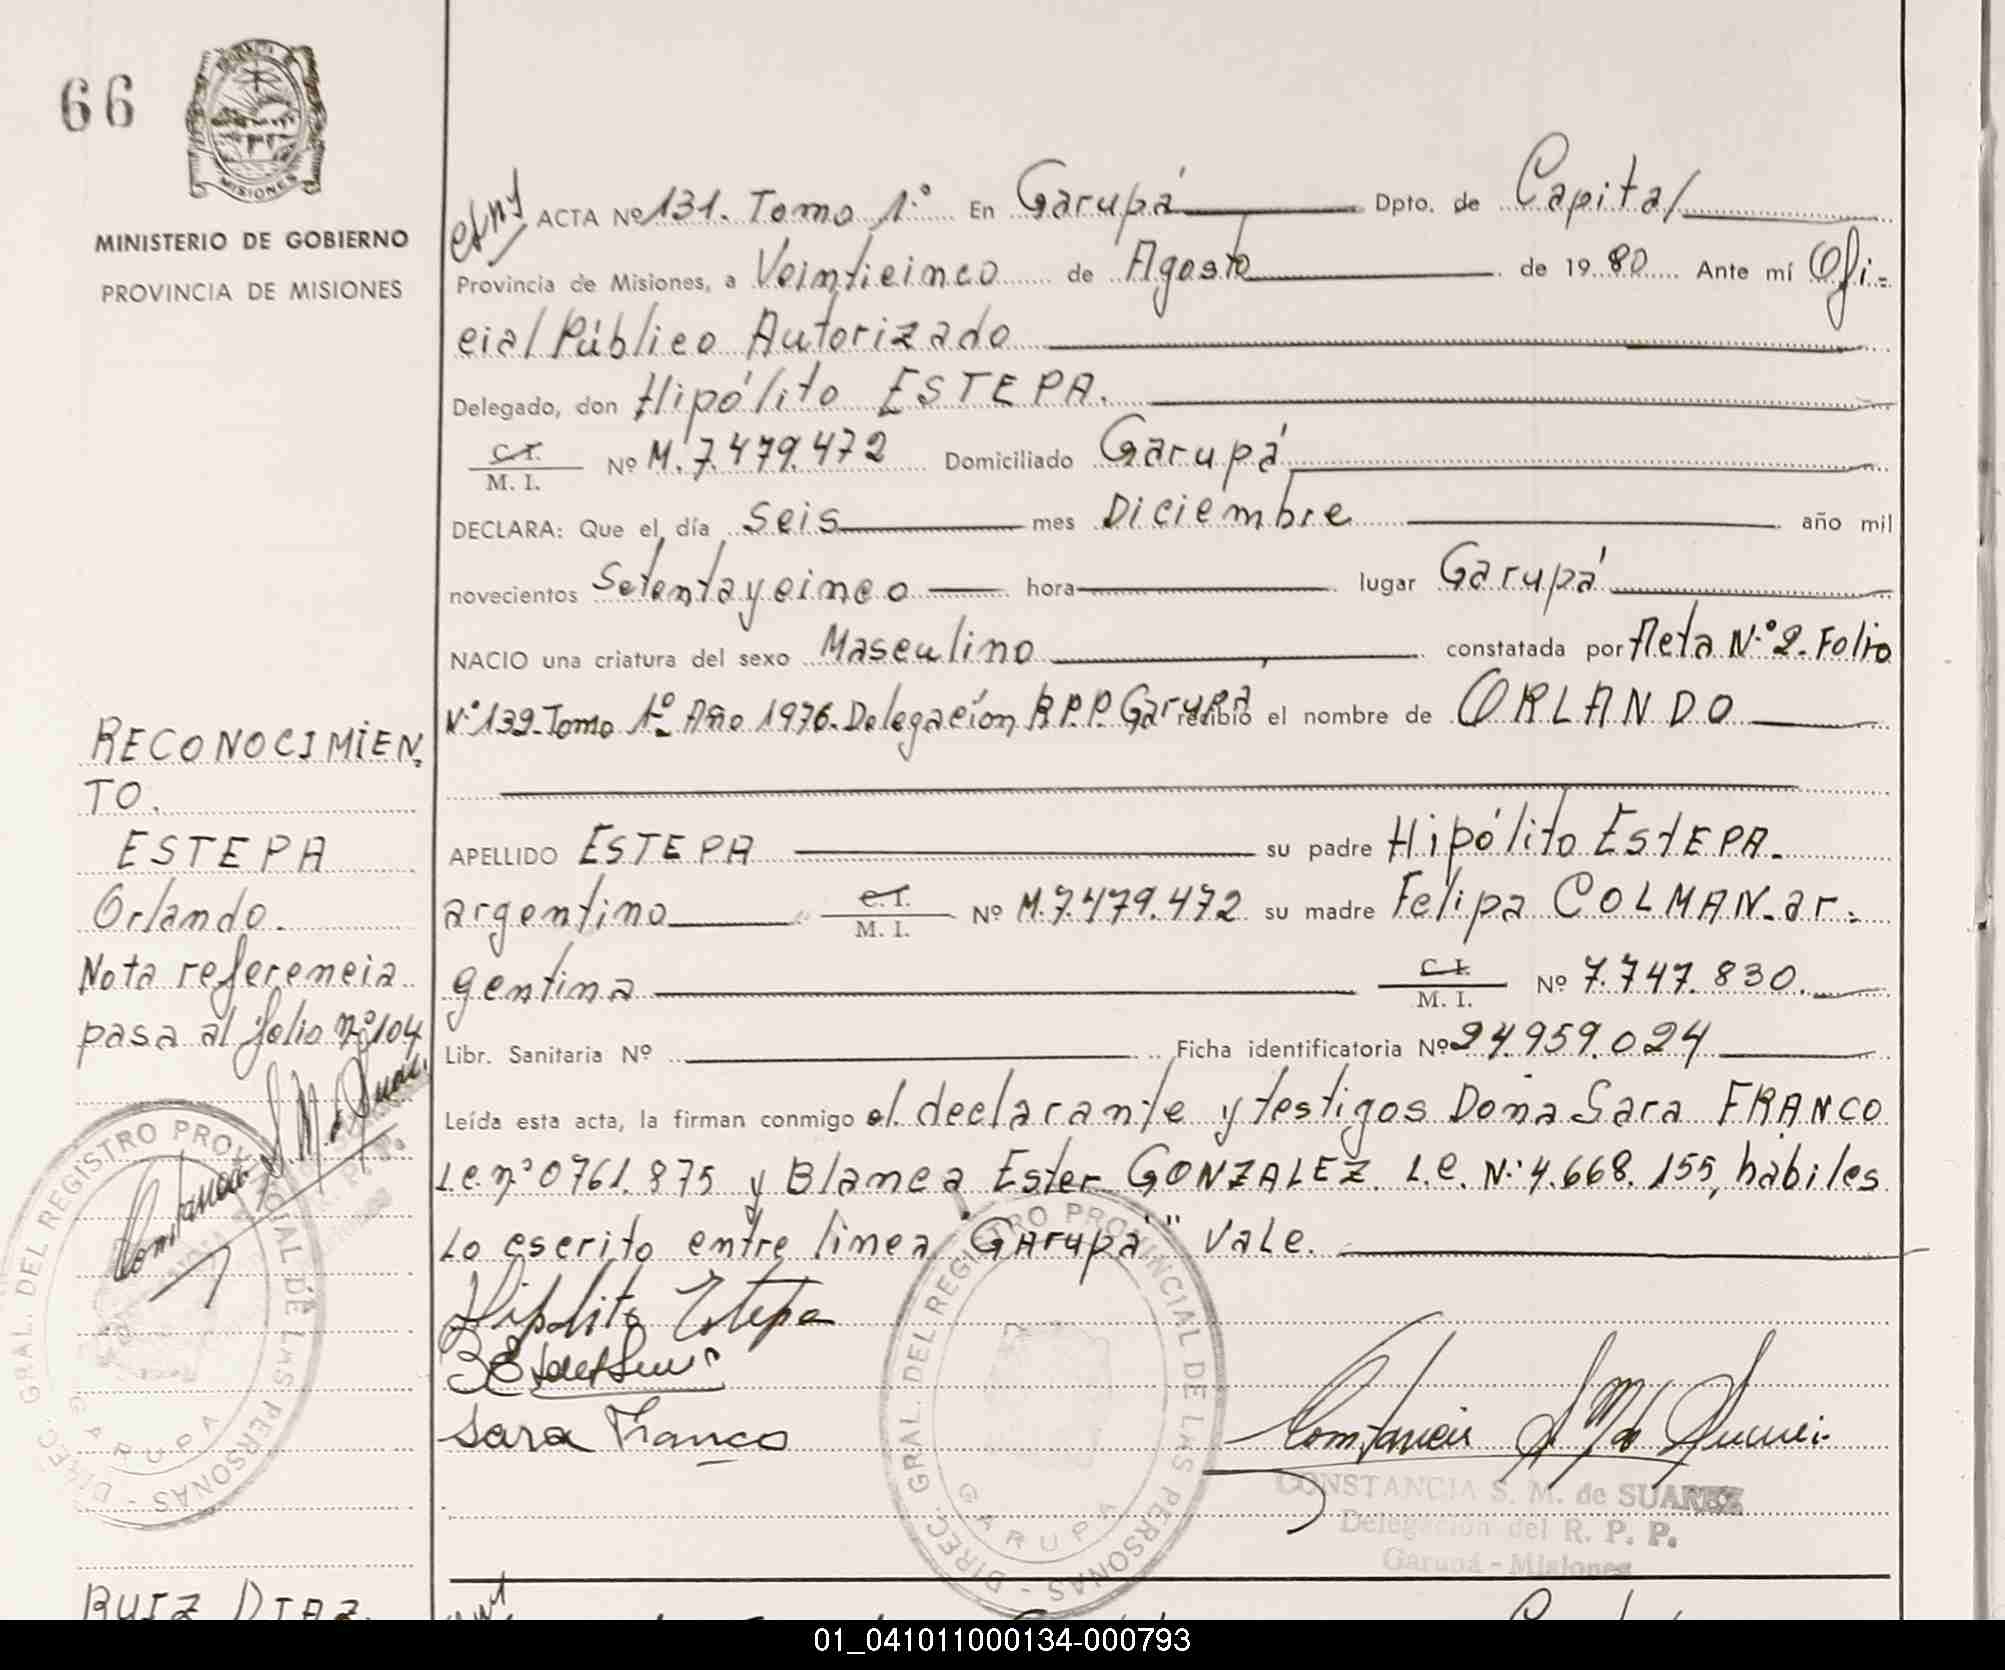 66
MISIONES
MINISTERIO DE GOBIERNO
PROVINCIA DE MISIONES
RECONOCIMIEN-
TO.
ESTEPA
Orlando.
Nota referencia
pasa al folio nº 104
DIREC. GRAL. DEL REGISTRO PROVINCIAL DE LAS PERSONAS -
GARUPA
RUIZ DIAZ.
ACTA Nº 131. Tomo 1º En Garupá Dpto. de Capital
Provincia de Misiones, a Veinticinco de Agosto de 19 80 Ante mí Ofi-
cial Público Autorizado
Delegado, don Hipólito ESTEPA.
C.I.
M. I. Nº M. 7.479.472 Domiciliado Garupá
DECLARA: Que el día Seis mes Diciembre año mil
novecientos Setenta y cinco hora lugar Garupá
NACIO una criatura del sexo Masculino constatada por Acta Nº 2. Folio
Nº 139. Tomo 1º Año 1976. Delegación R.P.P. Garupá recibió el nombre de ORLANDO
APELLIDO ESTEPA su padre Hipólito ESTEPA.
argentino C.I.
M. I. Nº M. 7.479.472 su madre Felipa COLMAN - ar-
gentina C.I.
M. I. Nº 7.747.830.
Libr. Sanitaria Nº Ficha identificatoria Nº 24.959.024
Leída esta acta, la firman conmigo el declarante y testigos Doña Sara FRANCO
L.e. nº 0761.875 y Blanca Ester GONZALEZ. L.e. Nº 4.668.155, hábiles
Lo escrito entre línea "Garupá" Vale.
Hipolito Estepa
Sara Franco
DIREC. GRAL. DEL REGISTRO PROVINCIAL DE LAS PERSONAS -
GARUPA
CONSTANCIA S. M. de SUAREZ
Delegación del R. P. P.
Garupá - Misiones
01_041011000134-000793